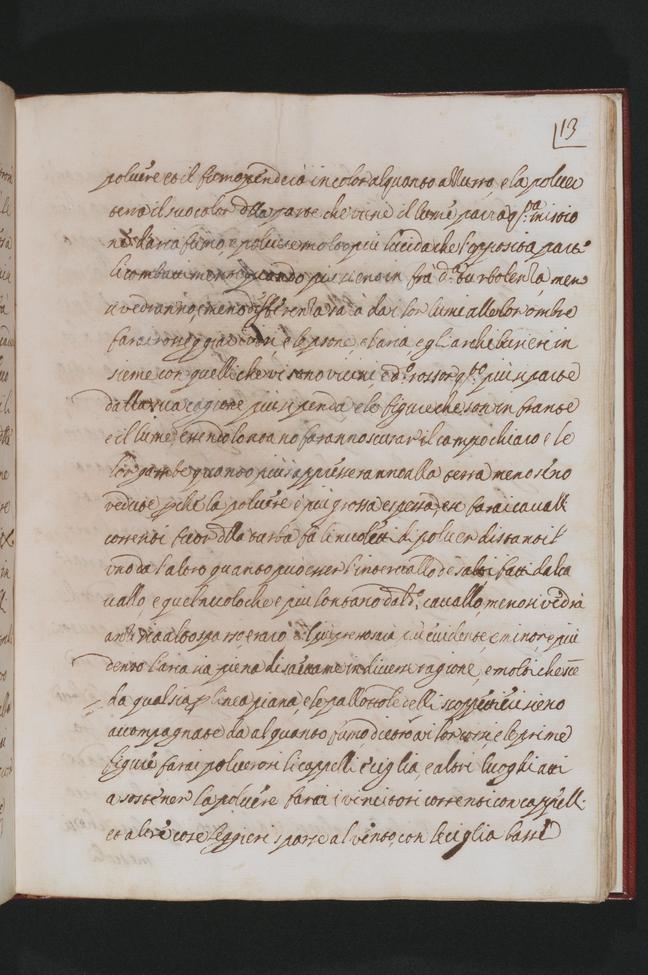 13
polvere et il fumo penderà in color alquanto azzurro, e la polver
terrà il suo color dlla parte che viene il lume parrà qsta mistio
ne d'aria fumo, e polvere molto più lucida che l'opposita parte
li combattenti quando più sieno in fra da turbolenza, men
si vedranno, e meno differenza sarà dai lor lumi alle lor ombre
farai rosseggiar i volti e le psone, e l'aria e gli archibusieri in
sieme con quelli che vi sono vicini, e do rossor qto più si parte
dalla sua cagione più si perda, e le figure che son in fra nte
e il lume, essendo lontano faranno scurar il campo chiaro e le
lor gambe quanto più s'appresseranno alla terra meno sino
vedute pche la polvere è più grossa e spessa, et se farai cavalli
correnti fuor dlla turba fa li nuvoletti di polver distanti l'
uno da l'altro quanto può esser l'intervallo de salti fatti dal ca
vallo, e quel nuvolo che è più lontano dal do cavallo, meno si vedrà
anzi sia alto sparso, e raro è 'l più presso sia più evidente, e minor, e più
denso l'aria sia piena di saettame in diverse ragione, e molti che
da qual si a p linea piana, e le pallottole delli scoppettieri sieno
accompagnate da alquanto fumo dietro ai lor corsi, e le prime
figure farai polverosi li cappelli e ciglia, e altri luoghi atti
a sostener la polvere farai i vincitori correnti con cappelli
et altre cose leggieri sparse al vento, con le ciglia basse